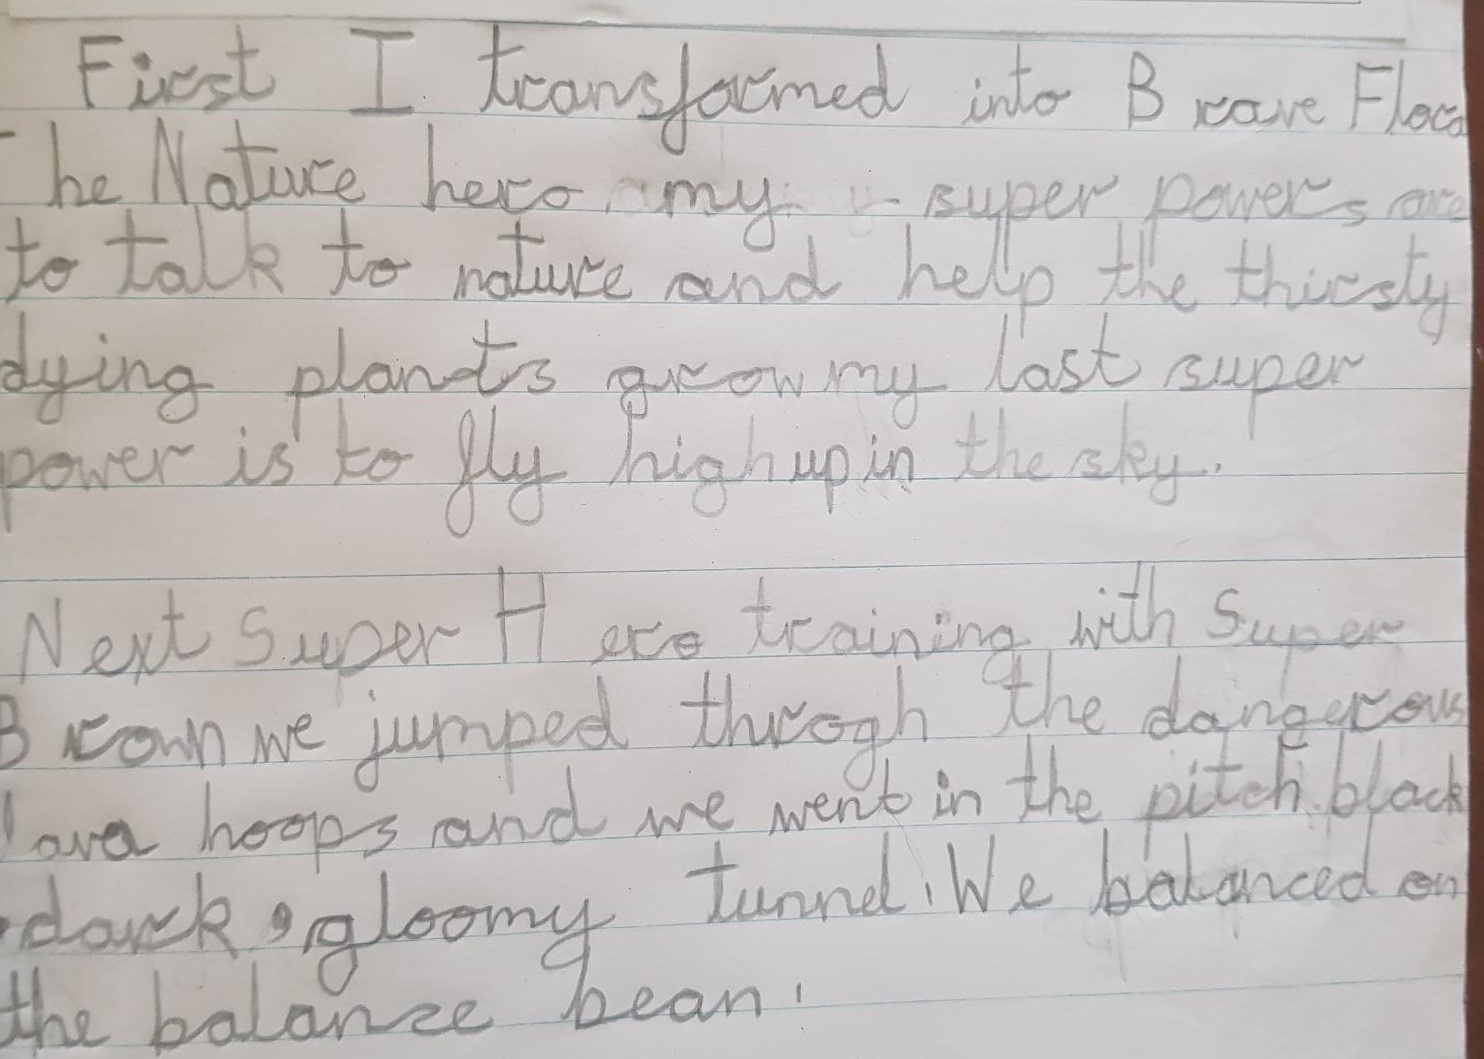 First I transformed into Brave Flora
The Nature hero my super powers are
to talk to nature and help the thirsty
dying plants grow my last super
power is to fly high up in the sky.
Next Super Hero training with Super
Brown we jumped throgh the dangerous
lava hoops and we went in the pitch black
dark, gloomy tunnel. We balanced on
the balance bean.